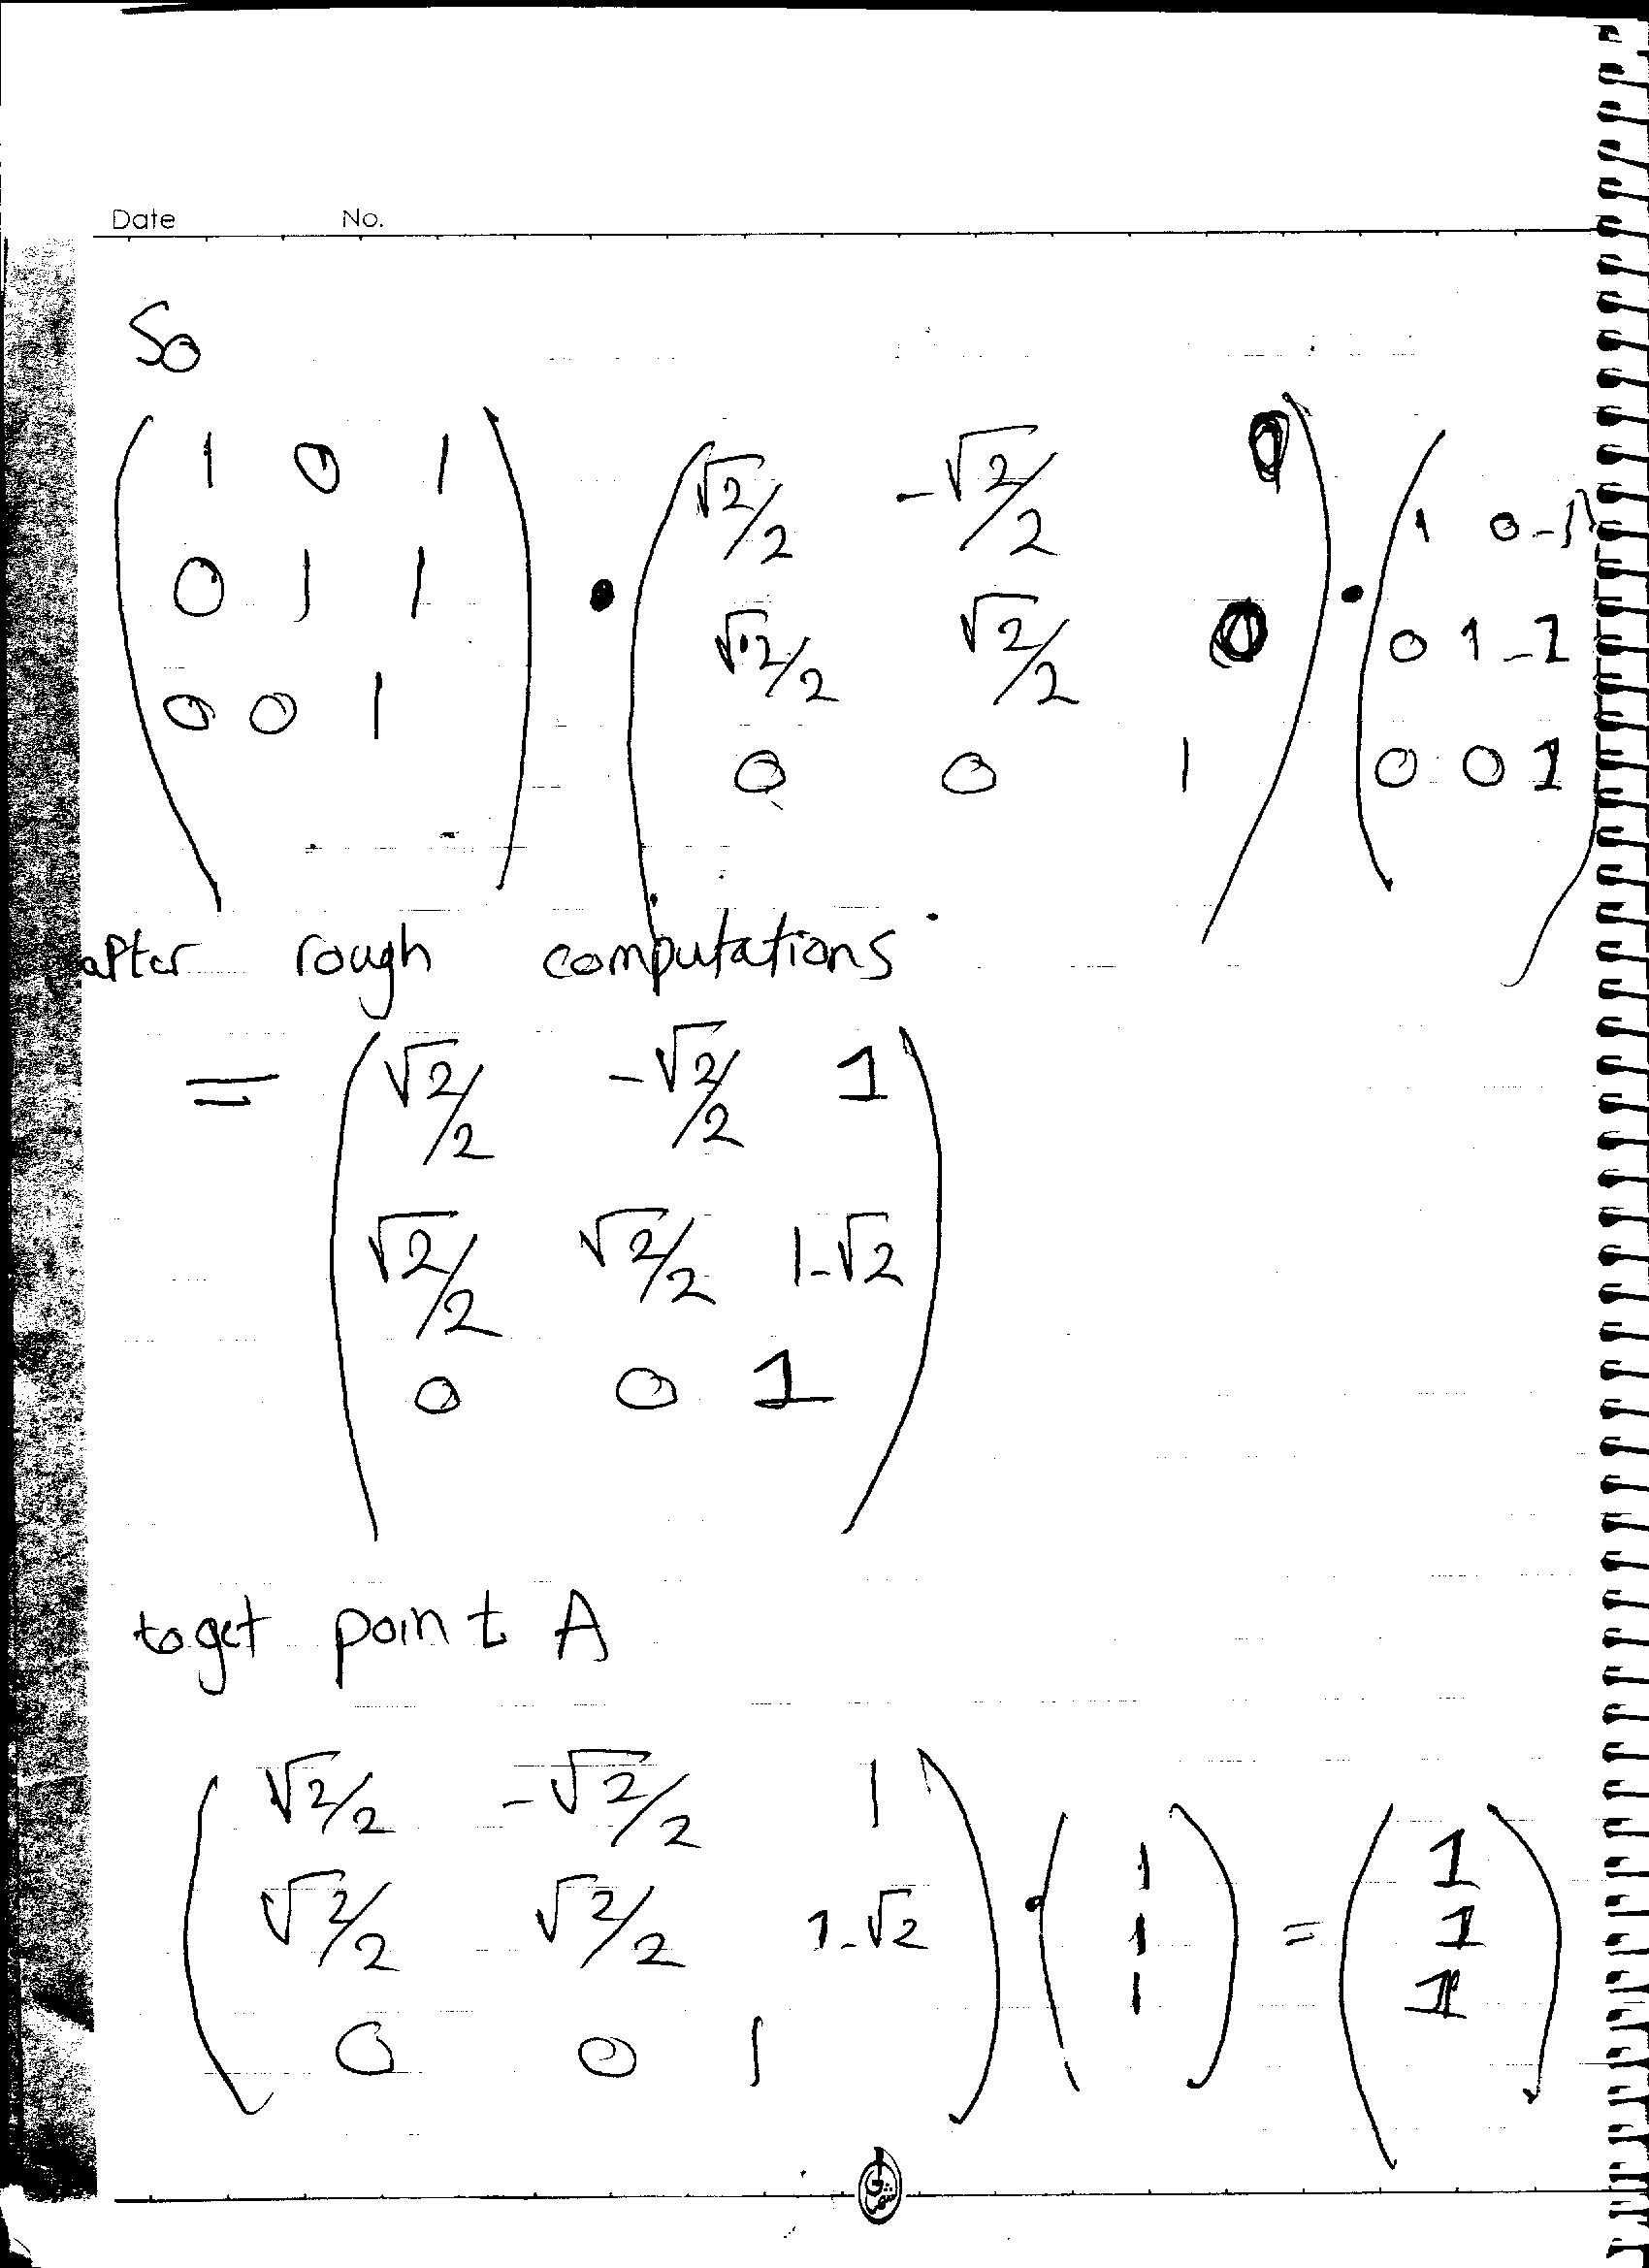 Date No.
So
1 0 1 √2/2 -√2/2 0 1 0 -1
0 1 1 • √2/2 √2/2 0 • 0 1 -1
0 0 1 0 0 1 0 0 1
after rough computations
= √2/2 -√2/2 1
√2/2 √2/2 1-√2
0 0 1
to get point A
√2/2 -√2/2 1 1 1
√2/2 √2/2 1-√2 • 1 = 1
0 0 1 1 1